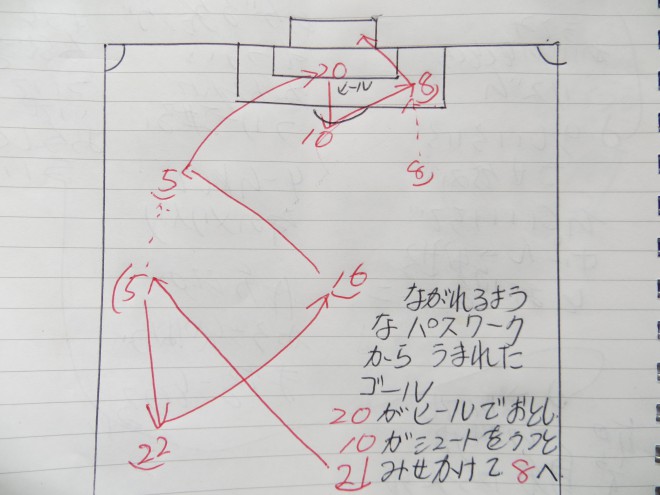 20
ヒール
8
10
5
8
5
16
22
ながれるよう
なパスワーク
から うまれた
ゴール
20 がヒールでおとし
10 がシュートをうつと
21 みせかけて 8へ